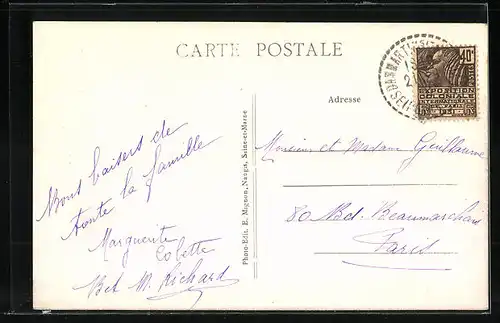 CARTE POSTALE
DAMMARTIN
40c
EXPOSITION
COLONIALE
Adresse
Photo-Edit. E. Mignon, Nangis, Seine-et-Marne
Mons baisers de
toute la famille
Marguerite
Colette
Bet M. Richard
Monsieur et Madame Guillaume
80 Bd. Beaumarchais
Paris